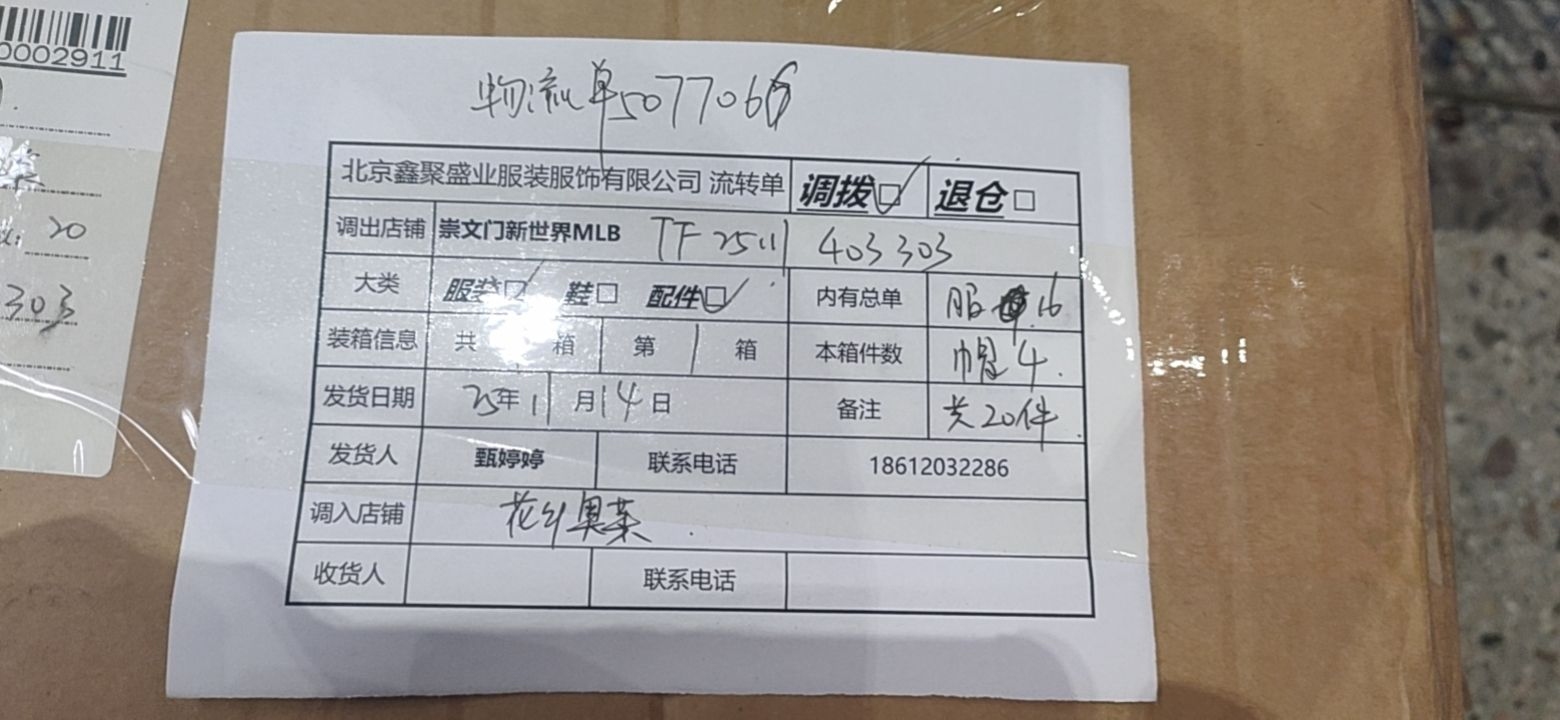 0002911
20
303
物流单507706
北京鑫聚盛业服装服饰有限公司 流转单 调拨□✓ 退仓□
调出店铺 崇文门新世界MLB TF2511403303
大类 服装□✓ 鞋□ 配件□✓ 内有总单 服 16
装箱信息 共 箱 第 箱 本箱件数 帽 4.
发货日期 25年11月14日 备注 共20件.
发货人 甄婷婷 联系电话 18612032286
调入店铺 花乡奥莱
收货人 联系电话